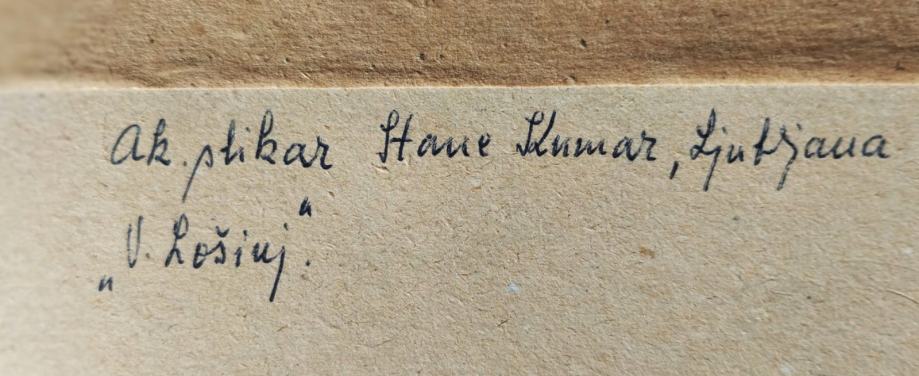 Ak. slikar Stane Kumar, Ljubljana
„V. Lošinj.“